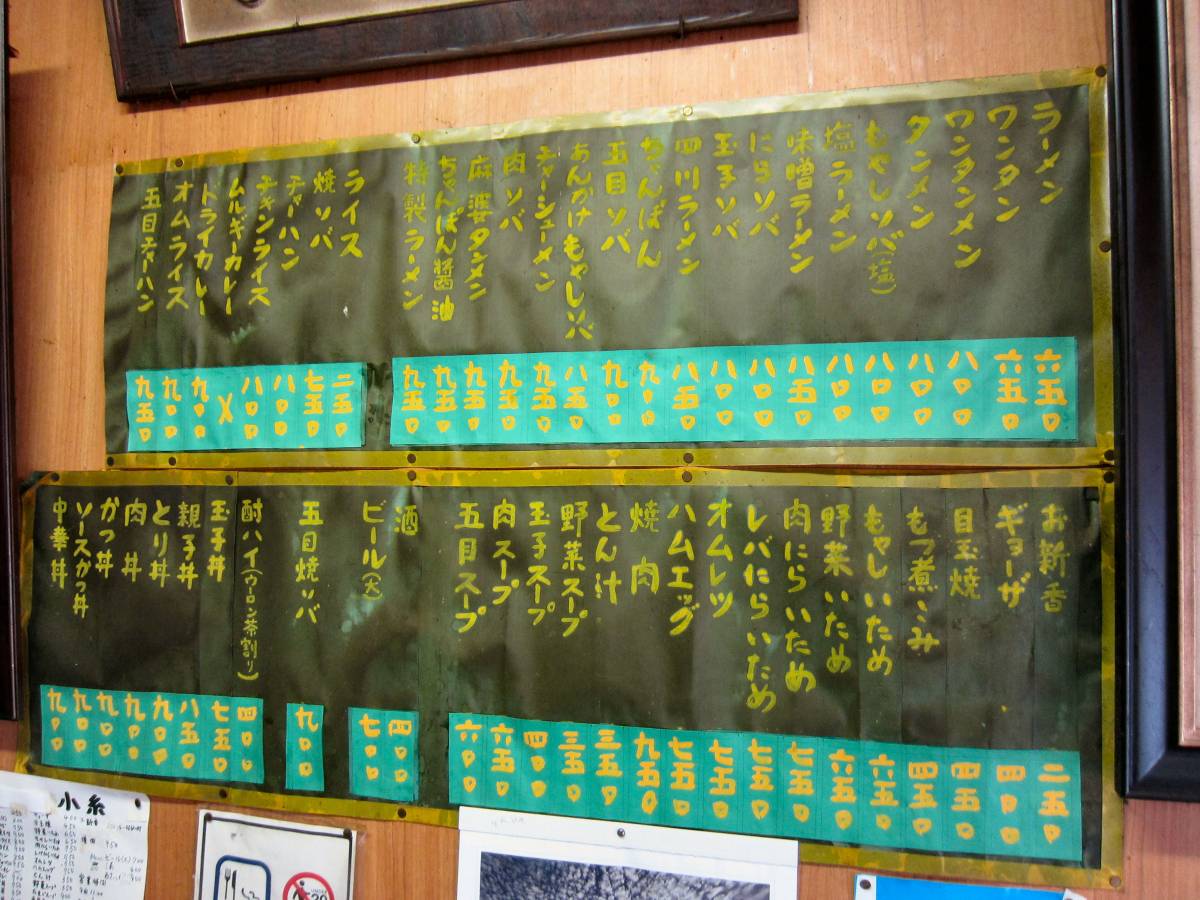 ラーメン 六五0
ワンタン 六五0
ワンタンメン 八00
タンメン 八00
もやしソバ(塩) 八00
塩ラーメン 八00
味噌ラーメン 八五0
にらソバ 八00
玉子ソバ 八00
四川ラーメン 八五0
ちゃんぽん 九00
五目ソバ 九00
あんかけもやしソバ 八五0
チャーシューメン 九五0
肉ソバ 九五0
麻婆タンメン 九五0
ちゃんぽん醤油 九五0
特製ラーメン 九五0
ライス 二五0
焼ソバ 七五0
チャーハン 八00
チキンライス 八00
ムルギーカレー X
ドライカレー 九00
オムライス 九00
五目チャーハン 九五0
お新香 二五0
ギョーザ 四00
目玉焼 四五0
もつ煮こみ 四五0
もやしいため 六五0
野菜いため 六五0
肉にらいため 七五0
レバにらいため 七五0
オムレツ 七五0
ハムエッグ 七五0
焼肉 九五0
とん汁 三五0
野菜スープ 三五0
玉子スープ 四00
肉スープ 六五0
五目スープ 六00
酒 四00
ビール(大) 七00
五目焼ソバ 九00
酎ハイ(ウロン茶割り) 四00
玉子丼 七五0
親子丼 八五0
とり丼 九00
肉丼 九00
かつ丼 九00
ソースかつ丼 九00
中華丼 九00
小糸